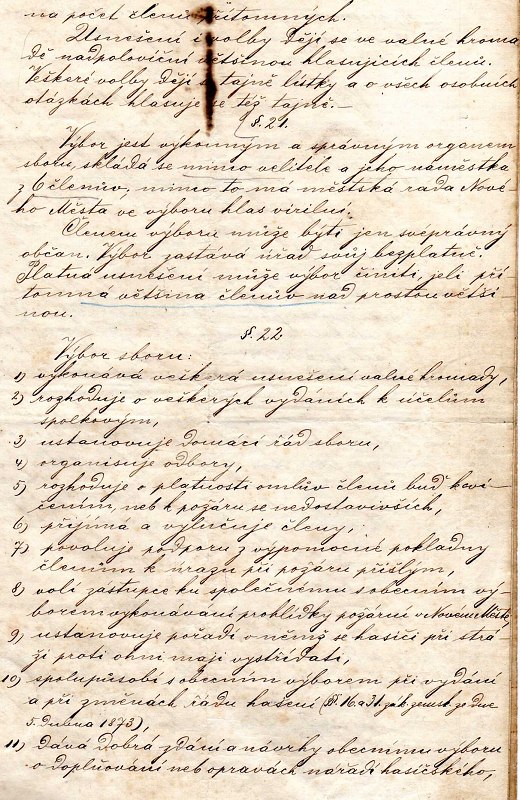 na počet členů přítomných.
Usnešení i volby dějí se ve valné hroma
dě nadpoloviční většinou hlasujících členů.
Veškeré volby dějí se tajně lístky a o všech osobních
otázkách hlasuje se též tajně.—
§. 21.
Výbor jest výkonným a správným organem
sboru, skládá se mimo velitele a jeho náměstka
z 6 členův, mimo to má městská rada Nové-
ho Města ve výboru hlas virilní.
Členem výboru může býti jen svéprávný
občan. Výbor zastává úřad svůj bezplatně.
Platná usnešení může výbor činiti, jeli pří-
tomná většina členův nad prostou větši-
nou.
§. 22
Výbor sboru:
1) vykonává veškerá usnešení valné hromady,
2) rozhoduje o veškerých vydáních k účelům
spolkovým,
3) ustanovuje domácí řád sboru,
4) organisuje odbory,
5) rozhoduje o platnosti omluv členů buď ke cvi-
čením, neb k požáru se nedostavivších,
6) přijímá a vylučuje členy,
7) povoluje podporu z výpomocné pokladny
členům k úrazu při požáru přišlým,
8) volí zástupce ku společnému s obecním vý-
borem vykonávání prohlídky požární v Novém Městě
9) ustanovuje pořadí v němž se hasiči při strá-
ži proti ohni mají vystřídati,
10) spolupůsobí s obecním výborem při vydání
a při změnách řádu hašení (§§. 16. a 31. zák. zemsk. ze dne
5. dubna 1873),
11) dává dobrá zdání a návrhy obecnímu výboru
o doplňování neb opravách nářadí hasičského,